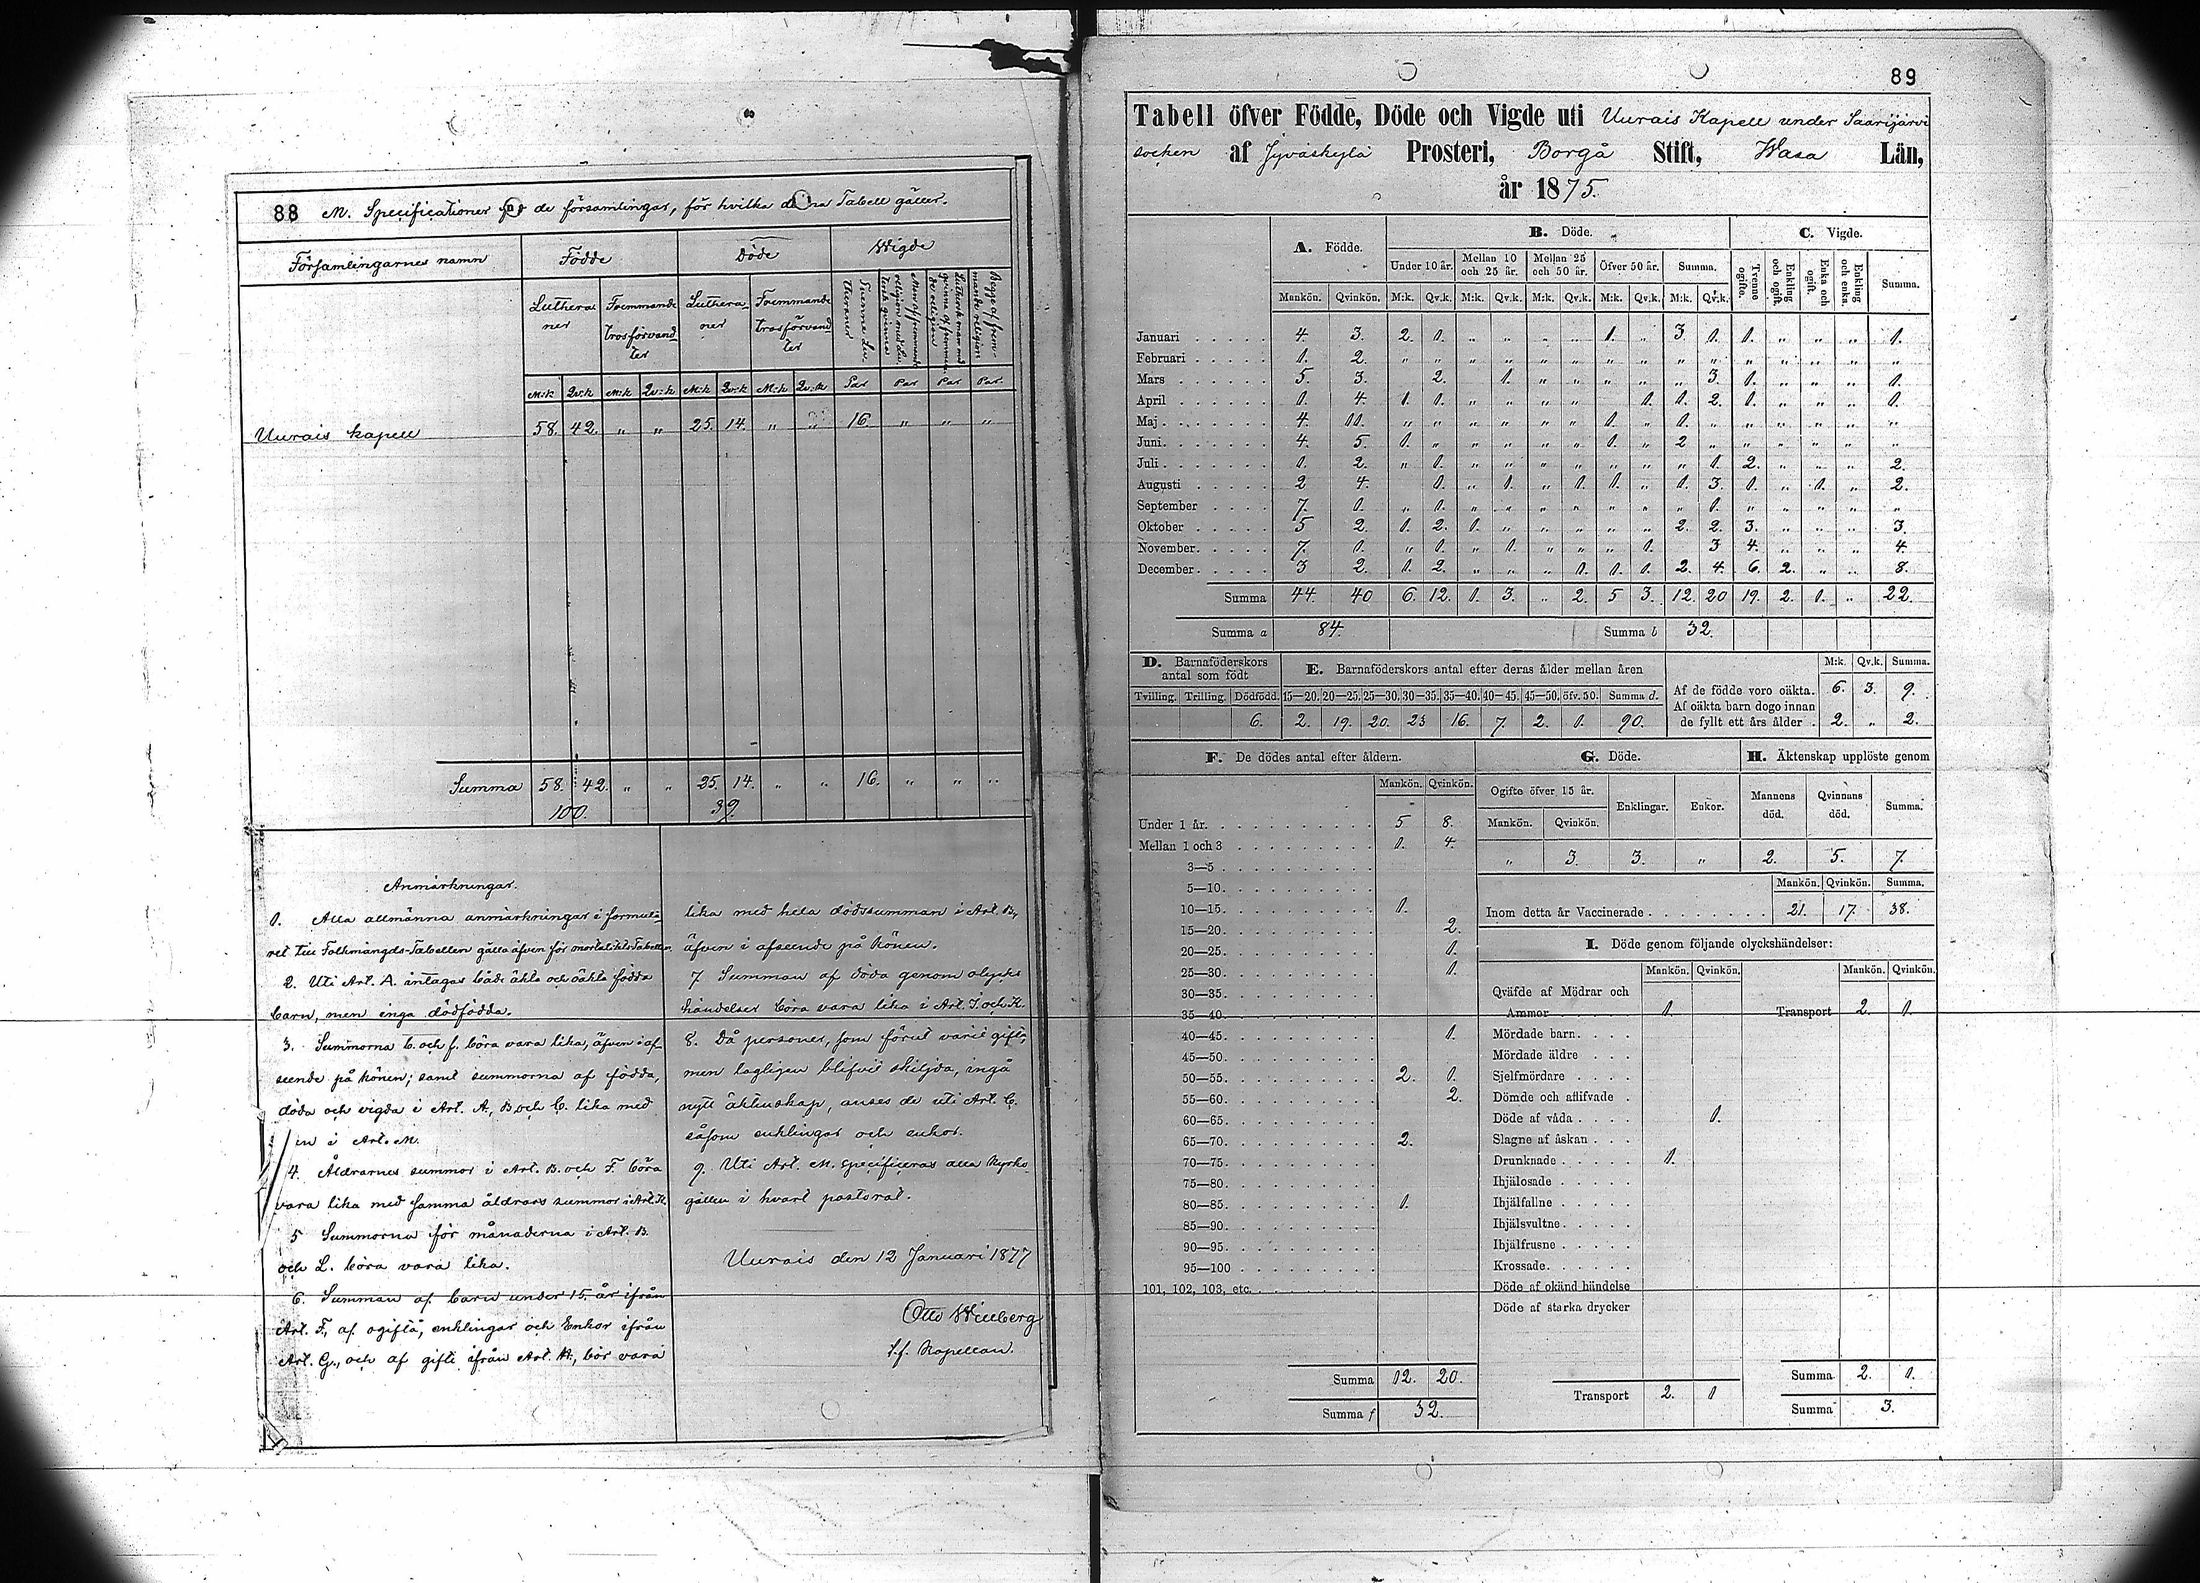 88 M. Specificationer för de församlingar, för hvilka denna Tabell gäller.
Församlingarnes namn | Födde | Döde | Wigde
Luthera-ner | Fremmande trosförvand-ter | Luthera-ner | Fremmande trosförvand-ter
M:k | Qv:k | M:k | Qv:k | M:k | Qv:k | M:k | Qv:k | Par | Par | Par | Par
Uurais kapell | 58. | 42. | „ | „ | 25. | 14. | „ | „ | 16. | „ | „ | „
Summa | 58. | 42. | „ | „ | 25. | 14. | „ | „ | 16. | „ | „ | „
100. | 39.
Anmärkningar.
1. Alla allmänna anmärkningar i formulä-
ret till Folkmängds-Tabellen gälla äfven för mortalitets Tabellen.
2. Uti Art. A. intagas både äkta och oäkta födda
barn, men inga dödfödda.
3. Summorna b. och f. böra vara lika, äfven i af-
seende på könen; samt summorna af födda,
döda och vigda i Art. A., B. och C. lika med
in i Art. M.
4. Åldrarnes summor i Art. B. och F. böra
vara lika med samma åldrars summor i Art. K.
5 Summorna för månaderna i Art. B.
och L. böra vara lika.
6. Summan af barn under 15. år ifrån
Art. F., af ogifta, enklingar och Enkor ifrån
Art. G., och af gifte ifrån Art. H., bör vara
lika med hela dödssumman i Art. B.,
äfven i afseende på könen.
7 Summan af döda genom olycks
händelser böra vara lika i Art. I. och K.
8. Då personer, som förut varit gifta,
men lagligen blifvit skiljda, ingå
nytt äktenskap, anses de uti Art. C.
såsom enklingar och enkor.
9. Uti Art. M. specificeras alla Kyrko-
gällen i hvart pastorat.
Uurais den 12 Januari 1877
Otto Willberg
t.f. Kapellan.
89
Tabell öfver Födde, Döde och Vigde uti Uurais Kapell under Saarijärvi
socken af Jyväskylä Prosteri, Borgå Stift, Wasa Län,
år 1875.
A. Födde. | B. Döde. | C. Vigde.
Under 10 år. | Mellan 10 och 25 år. | Mellan 25 och 50 år. | Öfver 50 år. | Summa. | Tvenne ogifte. | Enkling och ogift. | Enka och ogift. | Enkling och enka. | Summa.
Mankön. | Qvinkön. | M:k. | Qv.k. | M:k. | Qv.k. | M:k. | Qv.k. | M:k. | Qv.k. | M:k. | Qv.k.
Januari | 4. | 3. | 2. | 1. | „ | „ | „ | „ | 1. | „ | 3 | 1. | 1. | „ | „ | „ | 1.
Februari | 1. | 2. | „ | „ | „ | „ | „ | „ | „ | „ | „ | „ | „ | „ | „ | „ | „
Mars | 5. | 3. | | 2. | „ | 1. | „ | „ | „ | „ | „ | 3. | 1. | „ | „ | „ | 1.
April | 1. | 4. | 1. | 1. | „ | „ | „ | „ | | 1. | 1. | 2. | 1. | „ | „ | „ | 1.
Maj | 4. | 11. | „ | „ | „ | „ | „ | „ | 1. | „ | 1. | „ | „ | „ | „ | „ | „
Juni | 4. | 5. | 1. | „ | „ | „ | „ | „ | 1. | „ | 2 | „ | „ | „ | „ | „ | „
Juli | 1. | 2. | „ | 1. | „ | „ | „ | „ | „ | „ | „ | 1. | 2. | „ | „ | „ | 2.
Augusti | 2 | 4. | | 1. | „ | 1. | „ | 1. | 1. | „ | 1. | 3. | 1. | „ | 1. | „ | 2.
September | 7. | 1. | „ | 1. | „ | „ | „ | „ | „ | „ | „ | 1. | „ | „ | „ | „ | „
Oktober | 5 | 2. | 1. | 2. | 1. | „ | „ | „ | „ | „ | 2. | 2. | 3. | „ | „ | „ | 3.
November | 7. | 1. | „ | 1. | „ | 1. | „ | „ | „ | 1. | | 3 | 4. | „ | „ | „ | 4.
December | 3 | 2. | 1. | 2. | „ | „ | „ | 1. | 1. | 1. | 2. | 4. | 6. | 2. | „ | „ | 8.
Summa | 44. | 40 | 6. | 12. | 1. | 3. | „ | 2. | 5 | 3. | 12. | 20 | 19. | 2. | 1. | „ | 22.
Summa a | 84. | Summa b | 32.
D. Barnaföderskors antal som födt | E. Barnaföderskors antal efter deras ålder mellan åren | M:k. | Qv.k. | Summa.
Tvilling. | Trilling. | Dödfödd. | 15—20. | 20—25. | 25—30. | 30—35. | 35—40. | 40—45. | 45—50. | öfv. 50. | Summa d.
6. | 2. | 19. | 20. | 23 | 16. | 7. | 2. | 1. | 90.
Af de födde voro oäkta. | 6. | 3. | 9.
Af oäkta barn dogo innan
de fyllt ett års ålder . | 2. | „ | 2.
F. De dödes antal efter åldern.
Mankön. | Qvinkön.
Under 1 år. | 5 | 8.
Mellan 1 och 3 | 1. | 4.
3—5
5—10.
10—15. | 1.
15—20. | | 2.
20—25. | | 1.
25—30. | | 1.
30—35.
35—40.
40—45. | | 1.
45—50.
50—55. | 2. | 1.
55—60. | | 2.
60—65.
65—70. | 2.
70—75.
75—80.
80—85. | 1.
85—90.
90—95.
95—100
101, 102, 103, etc.
Summa | 12. | 20.
Summa f | 32.
G. Döde.
Ogifte öfver 15 år. | Enklingar. | Enkor.
Mankön. | Qvinkön.
„ | 3. | 3. | „
H. Äktenskap upplöste genom
Mannens död. | Qvinnans död. | Summa.
2. | 5. | 7.
Mankön. | Qvinkön. | Summa.
Inom detta år Vaccinerade | 21. | 17. | 38.
I. Döde genom följande olyckshändelser:
Mankön. | Qvinkön. | Mankön. | Qvinkön.
Qväfde af Mödrar och
Ammor | 1. | | Transport | 2. | 1.
Mördade barn.
Mördade äldre
Sjelfmördare
Dömde och aflifvade
Döde af våda | | 1.
Slagne af åskan
Drunknade | 1.
Ihjälosade
Ihjälfallne
Ihjälsvultne
Ihjälfrusne
Krossade.
Döde af okänd händelse
Döde af starka drycker
Transport | 2. | 1
Summa | 2. | 1.
Summa | 3.